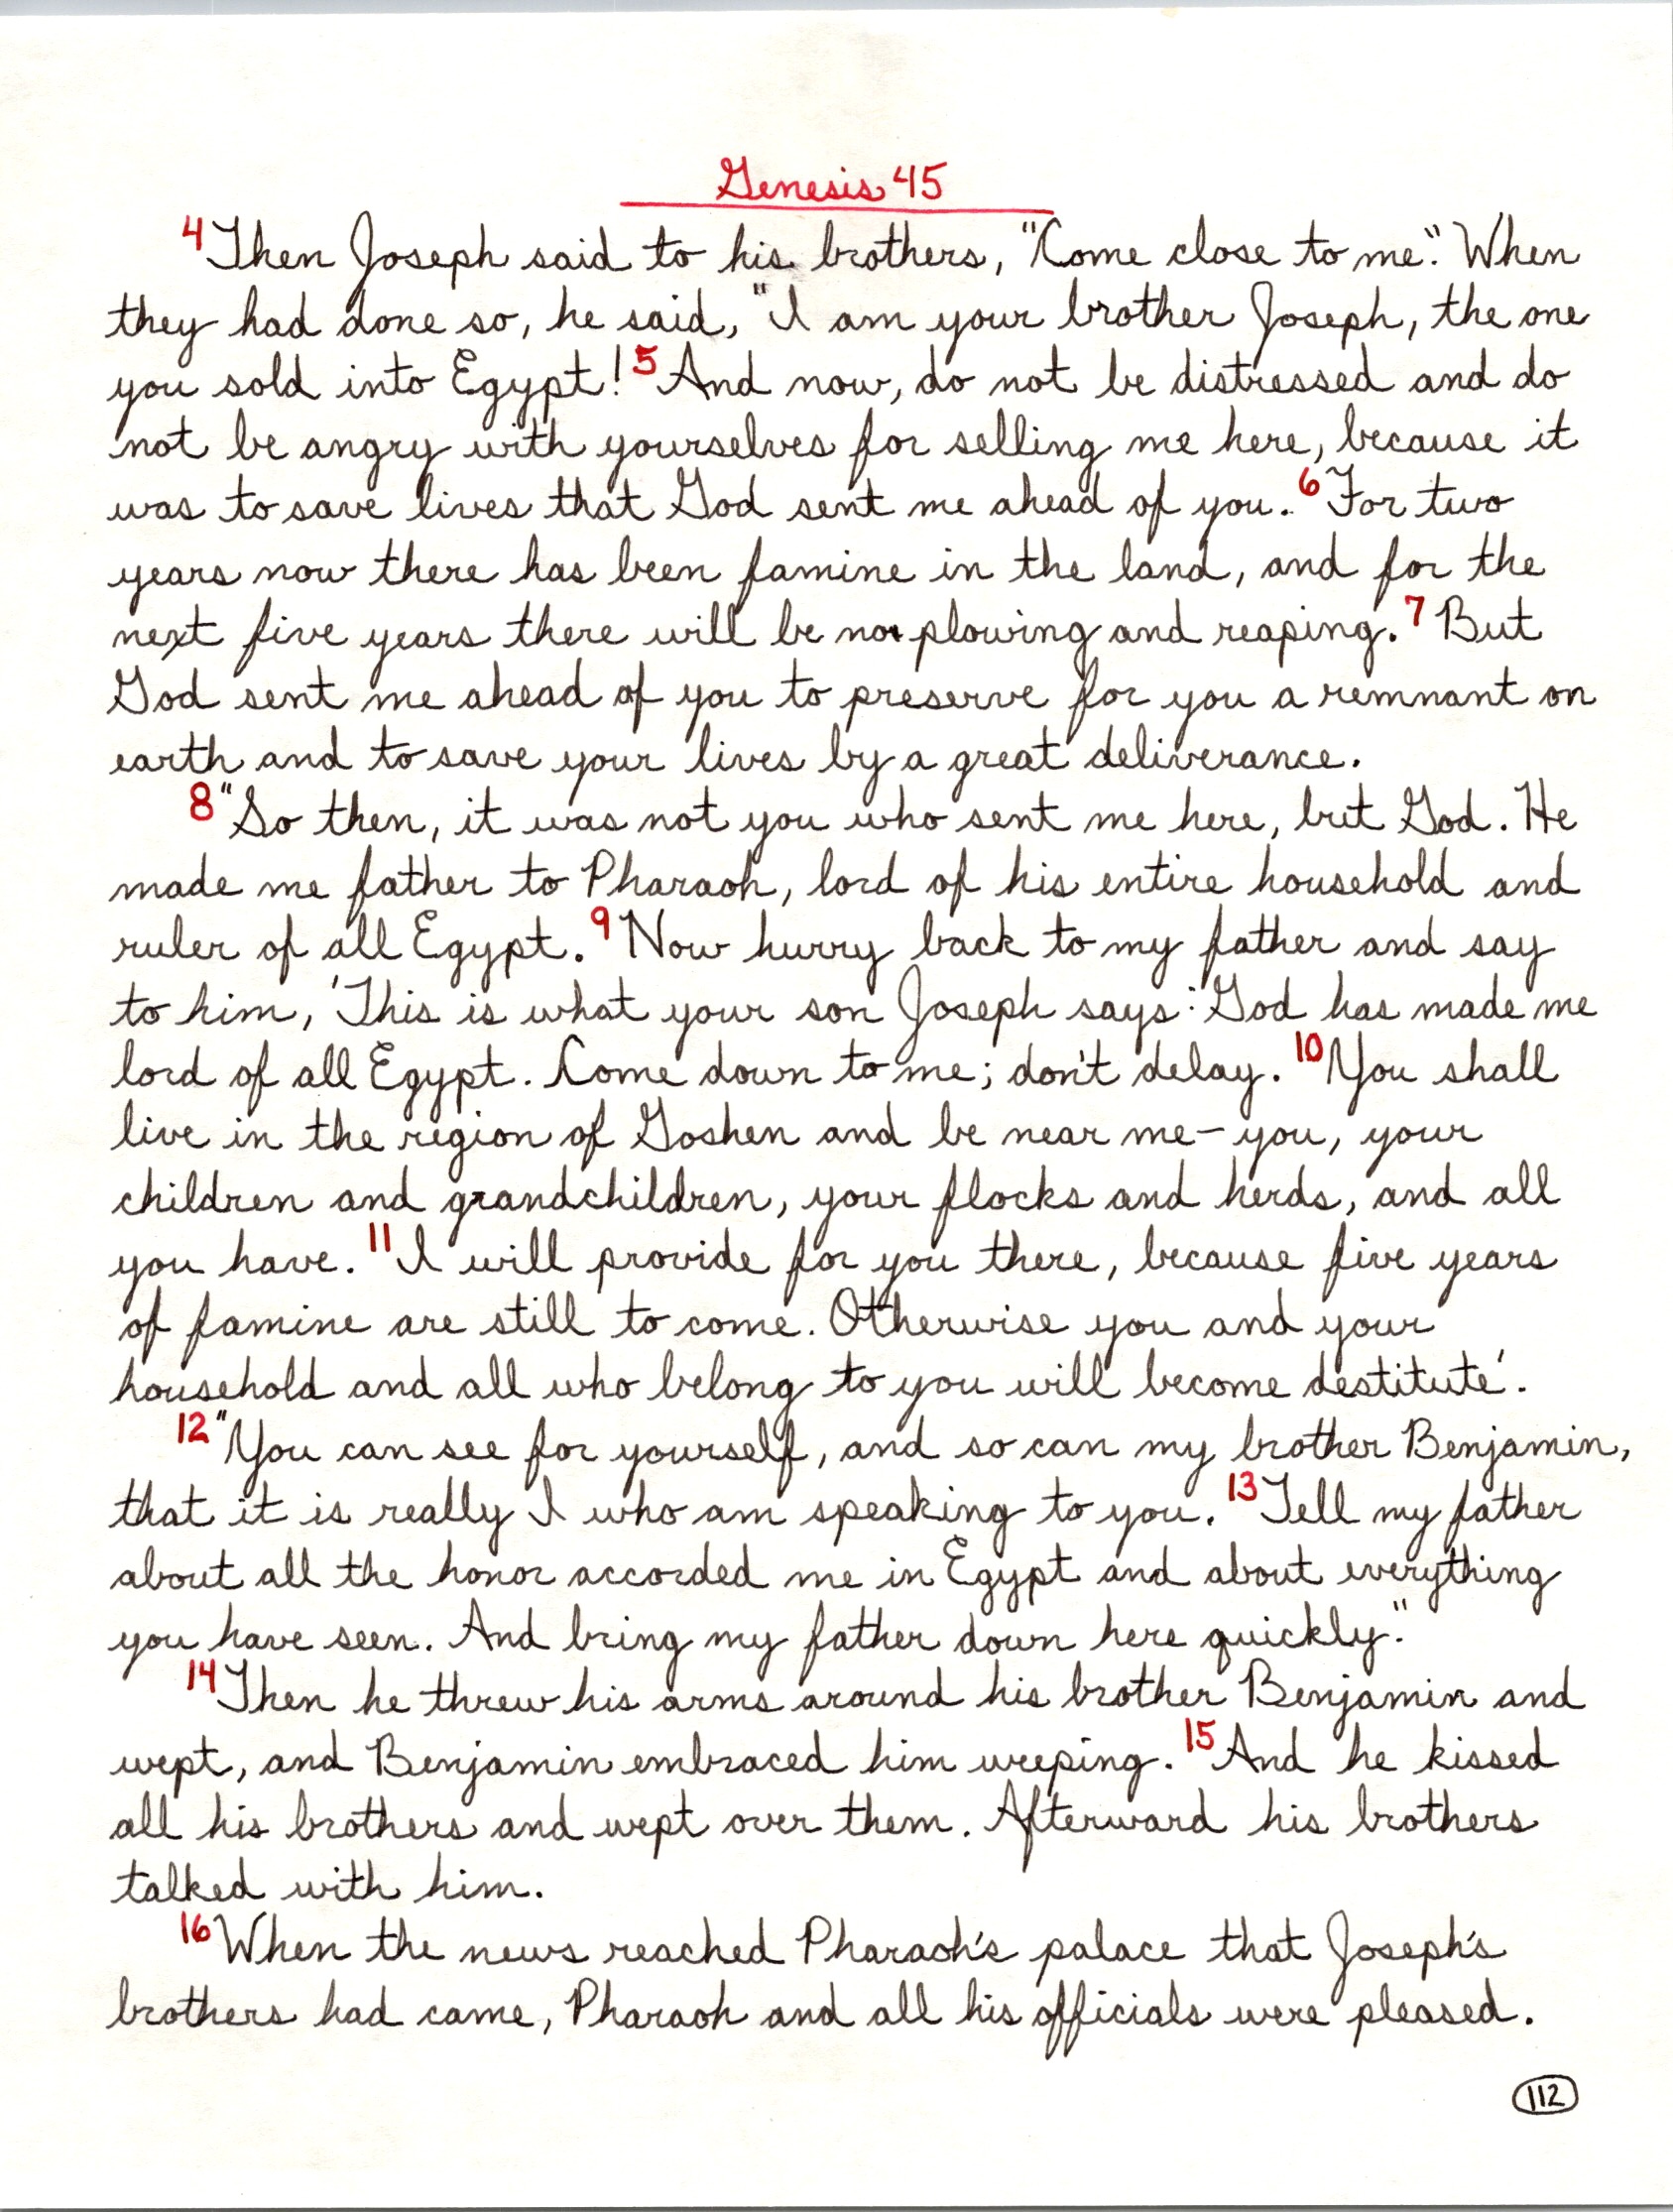 Genesis 45
4 Then Joseph said to his brothers, "Come close to me." When
they had done so, he said, "I am your brother Joseph, the one
you sold into Egypt! 5 And now, do not be distressed and do
not be angry with yourselves for selling me here, because it
was to save lives that God sent me ahead of you. 6 For two
years now there has been famine in the land, and for the
next five years there will be not plowing and reaping. 7 But
God sent me ahead of you to preserve for you a remnant on
earth and to save your lives by a great deliverance.
8 "So then, it was not you who sent me here, but God. He
made me father to Pharaoh, lord of his entire household and
ruler of all Egypt. 9 Now hurry back to my father and say
to him, 'This is what your son Joseph says: God has made me
lord of all Egypt. Come down to me; don't delay. 10 You shall
live in the region of Goshen and be near me—you, your
children and grandchildren, your flocks and herds, and all
you have. 11 I will provide for you there, because five years
of famine are still to come. Otherwise you and your
household and all who belong to you will become destitute.'
12 "You can see for yourself, and so can my brother Benjamin,
that it is really I who am speaking to you. 13 Tell my father
about all the honor accorded me in Egypt and about everything
you have seen. And bring my father down here quickly."
14 Then he threw his arms around his brother Benjamin and
wept, and Benjamin embraced him weeping. 15 And he kissed
all his brothers and wept over them. Afterward his brothers
talked with him.
16 When the news reached Pharaoh's palace that Joseph's
brothers had came, Pharaoh and all his officials were pleased.
112